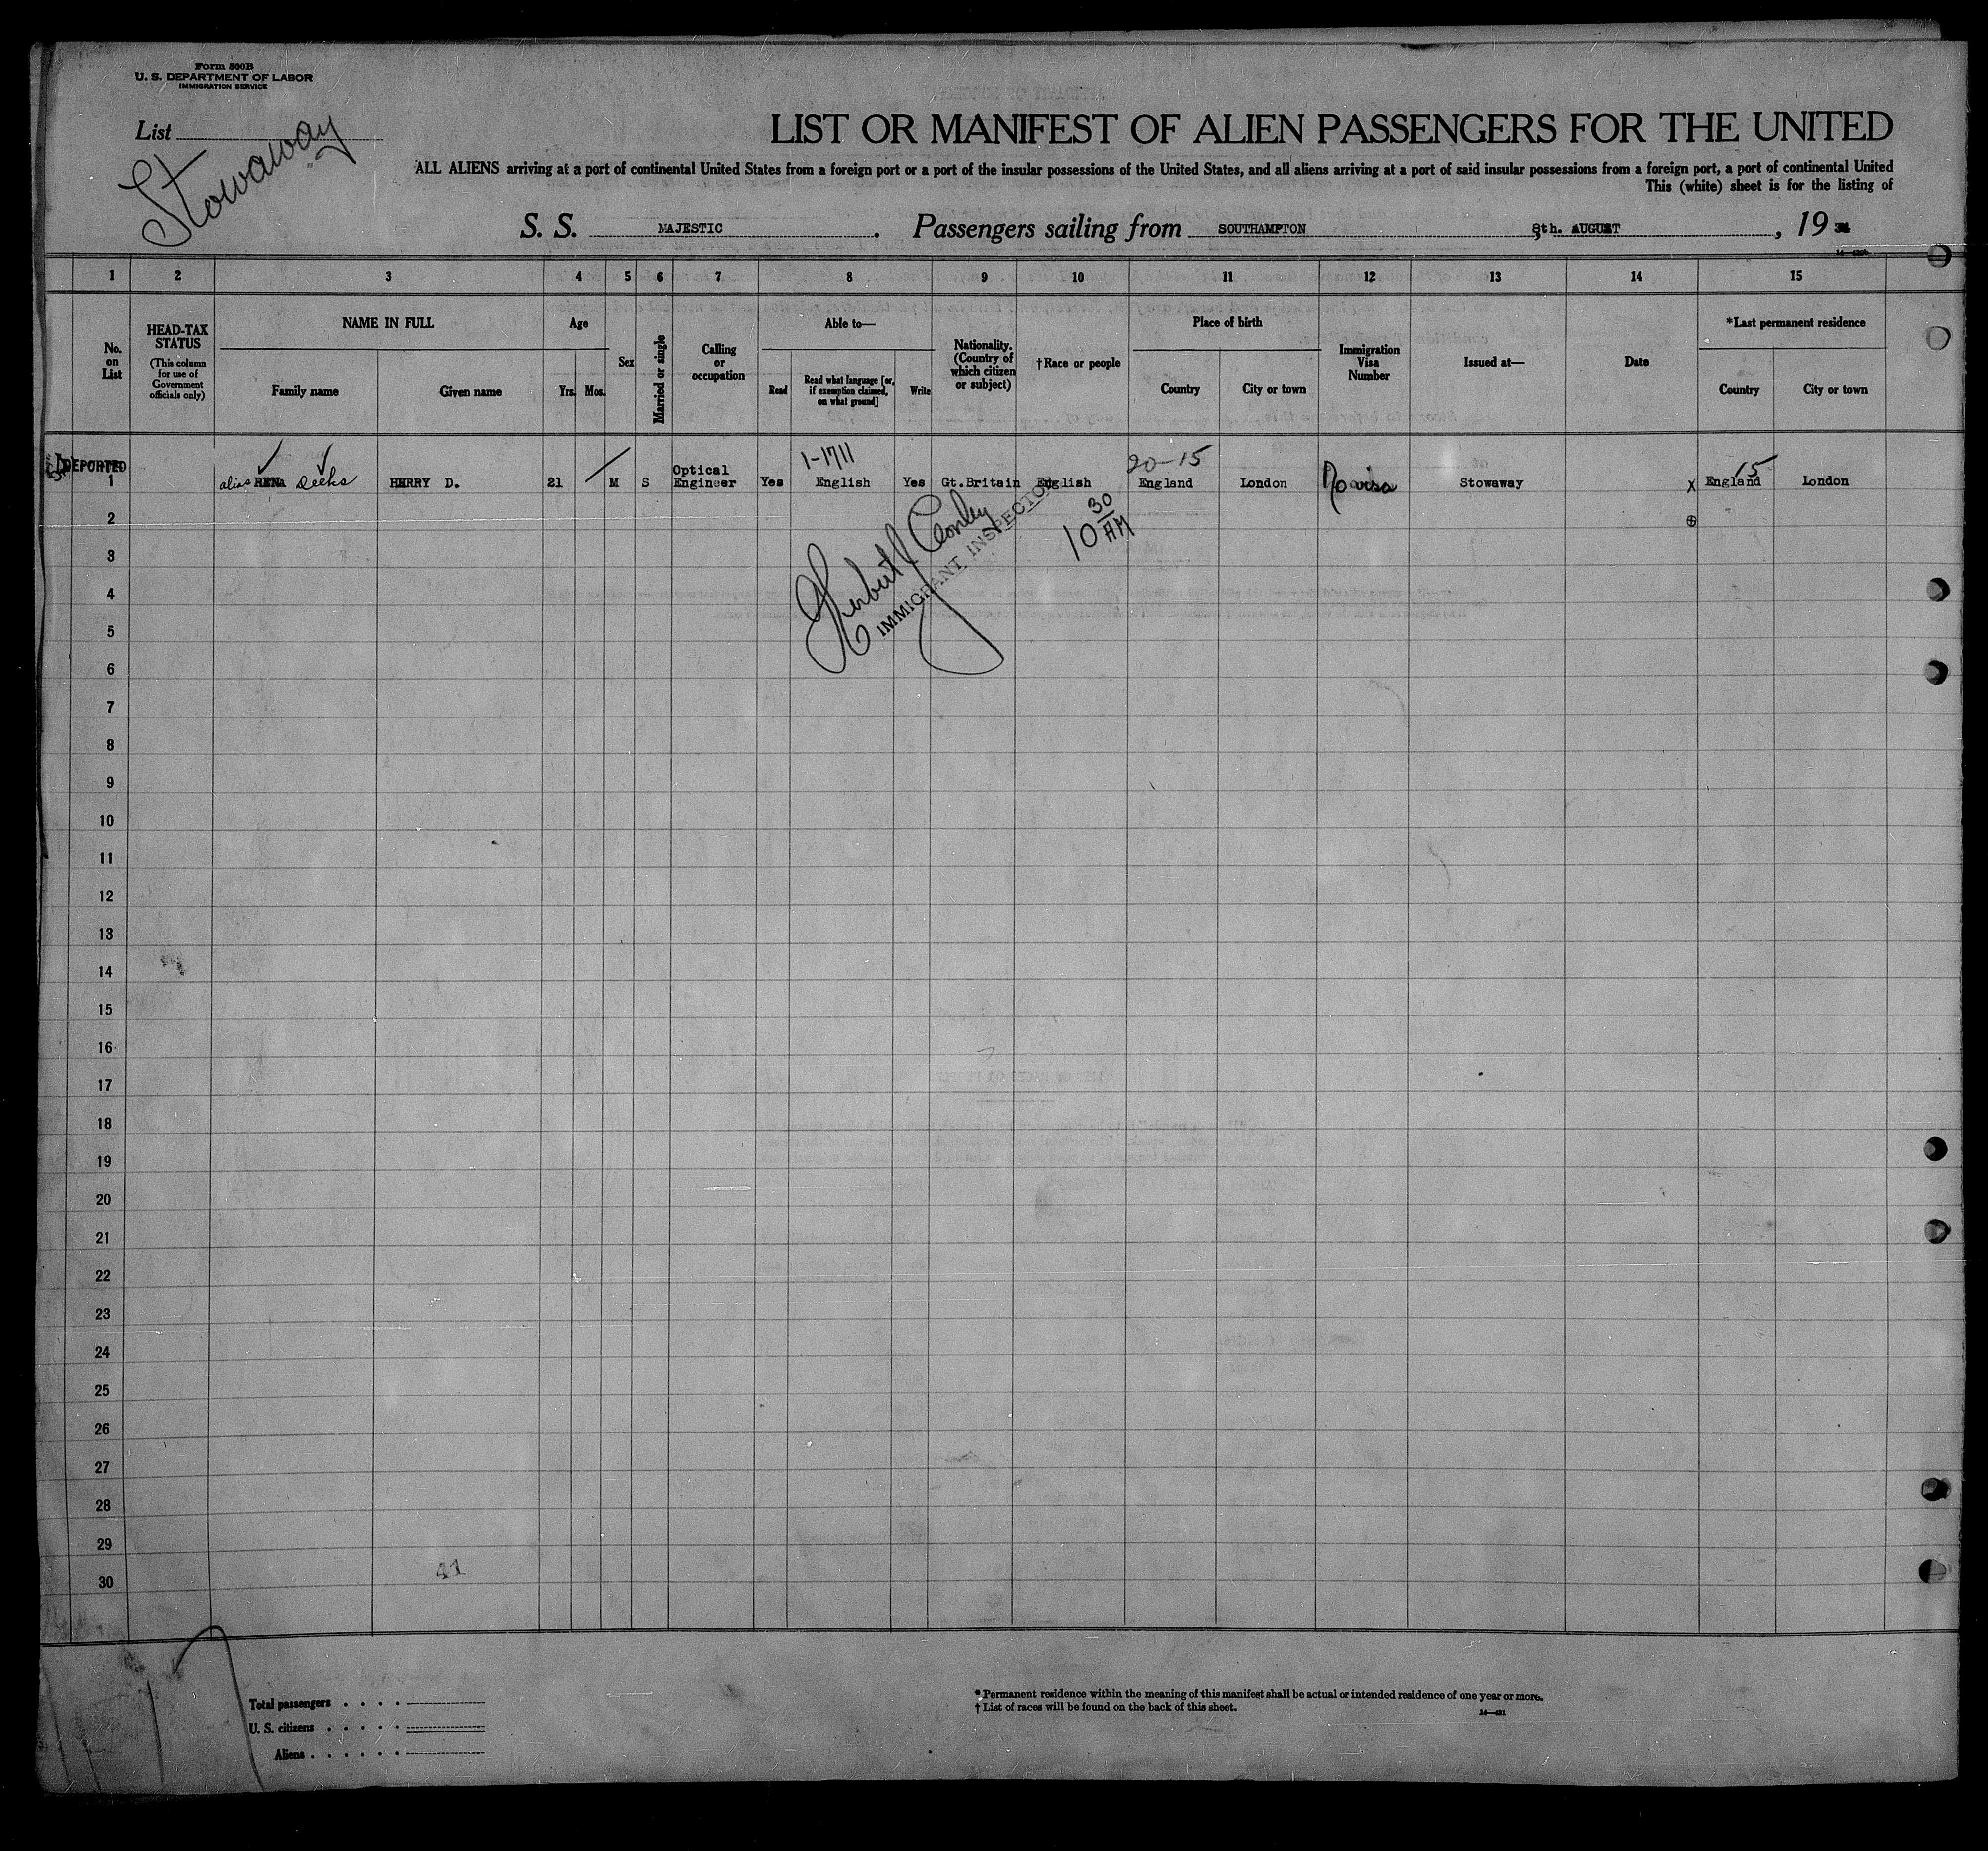 Form 500B
U. S. DEPARTMENT OF LABOR
IMMIGRATION SERVICE
List
Stowaway
LIST OR MANIFEST OF ALIEN PASSENGERS FOR THE UNITED
ALL ALIENS arriving at a port of continental United States from a foreign port or a port of the insular possessions of the United States, and all aliens arriving at a port of said insular possessions from a foreign port, a port of continental United
This (white) sheet is for the listing of
S. S. MAJESTIC. Passengers sailing from SOUTHAMPTON 8th. AUGUST, 19
1 2 3 4 5 6 7 8 9 10 11 12 13 14 15
No. on List
HEAD-TAX STATUS (This column for use of Government officials only)
NAME IN FULL
Family name
Given name
Age
Yrs. Mos.
Sex
Married or single
Calling or occupation
Able to—
Read
Read what language [or, if exemption claimed, on what ground]
Write
Nationality. (Country of which citizen or subject)
†Race or people
Place of birth
Country
City or town
Immigration Visa Number
Issued at—
Date
*Last permanent residence
Country
City or town
DEPORTED
1-1711
20-15
15
1 alias Deeks HERRY D. 21 M S Optical Engineer Yes English Yes Gt.Britain English England London No visa Stowaway X England London
10 30 AM
IMMIGRANT INSPECTOR
2
3
4
5
6
7
8
9
10
11
12
13
14
15
16
17
18
19
20
21
22
23
24
25
26
27
28
29
30
41
Total passengers
U. S. citizens
Aliens
* Permanent residence within the meaning of this manifest shall be actual or intended residence of one year or more.
† List of races will be found on the back of this sheet.